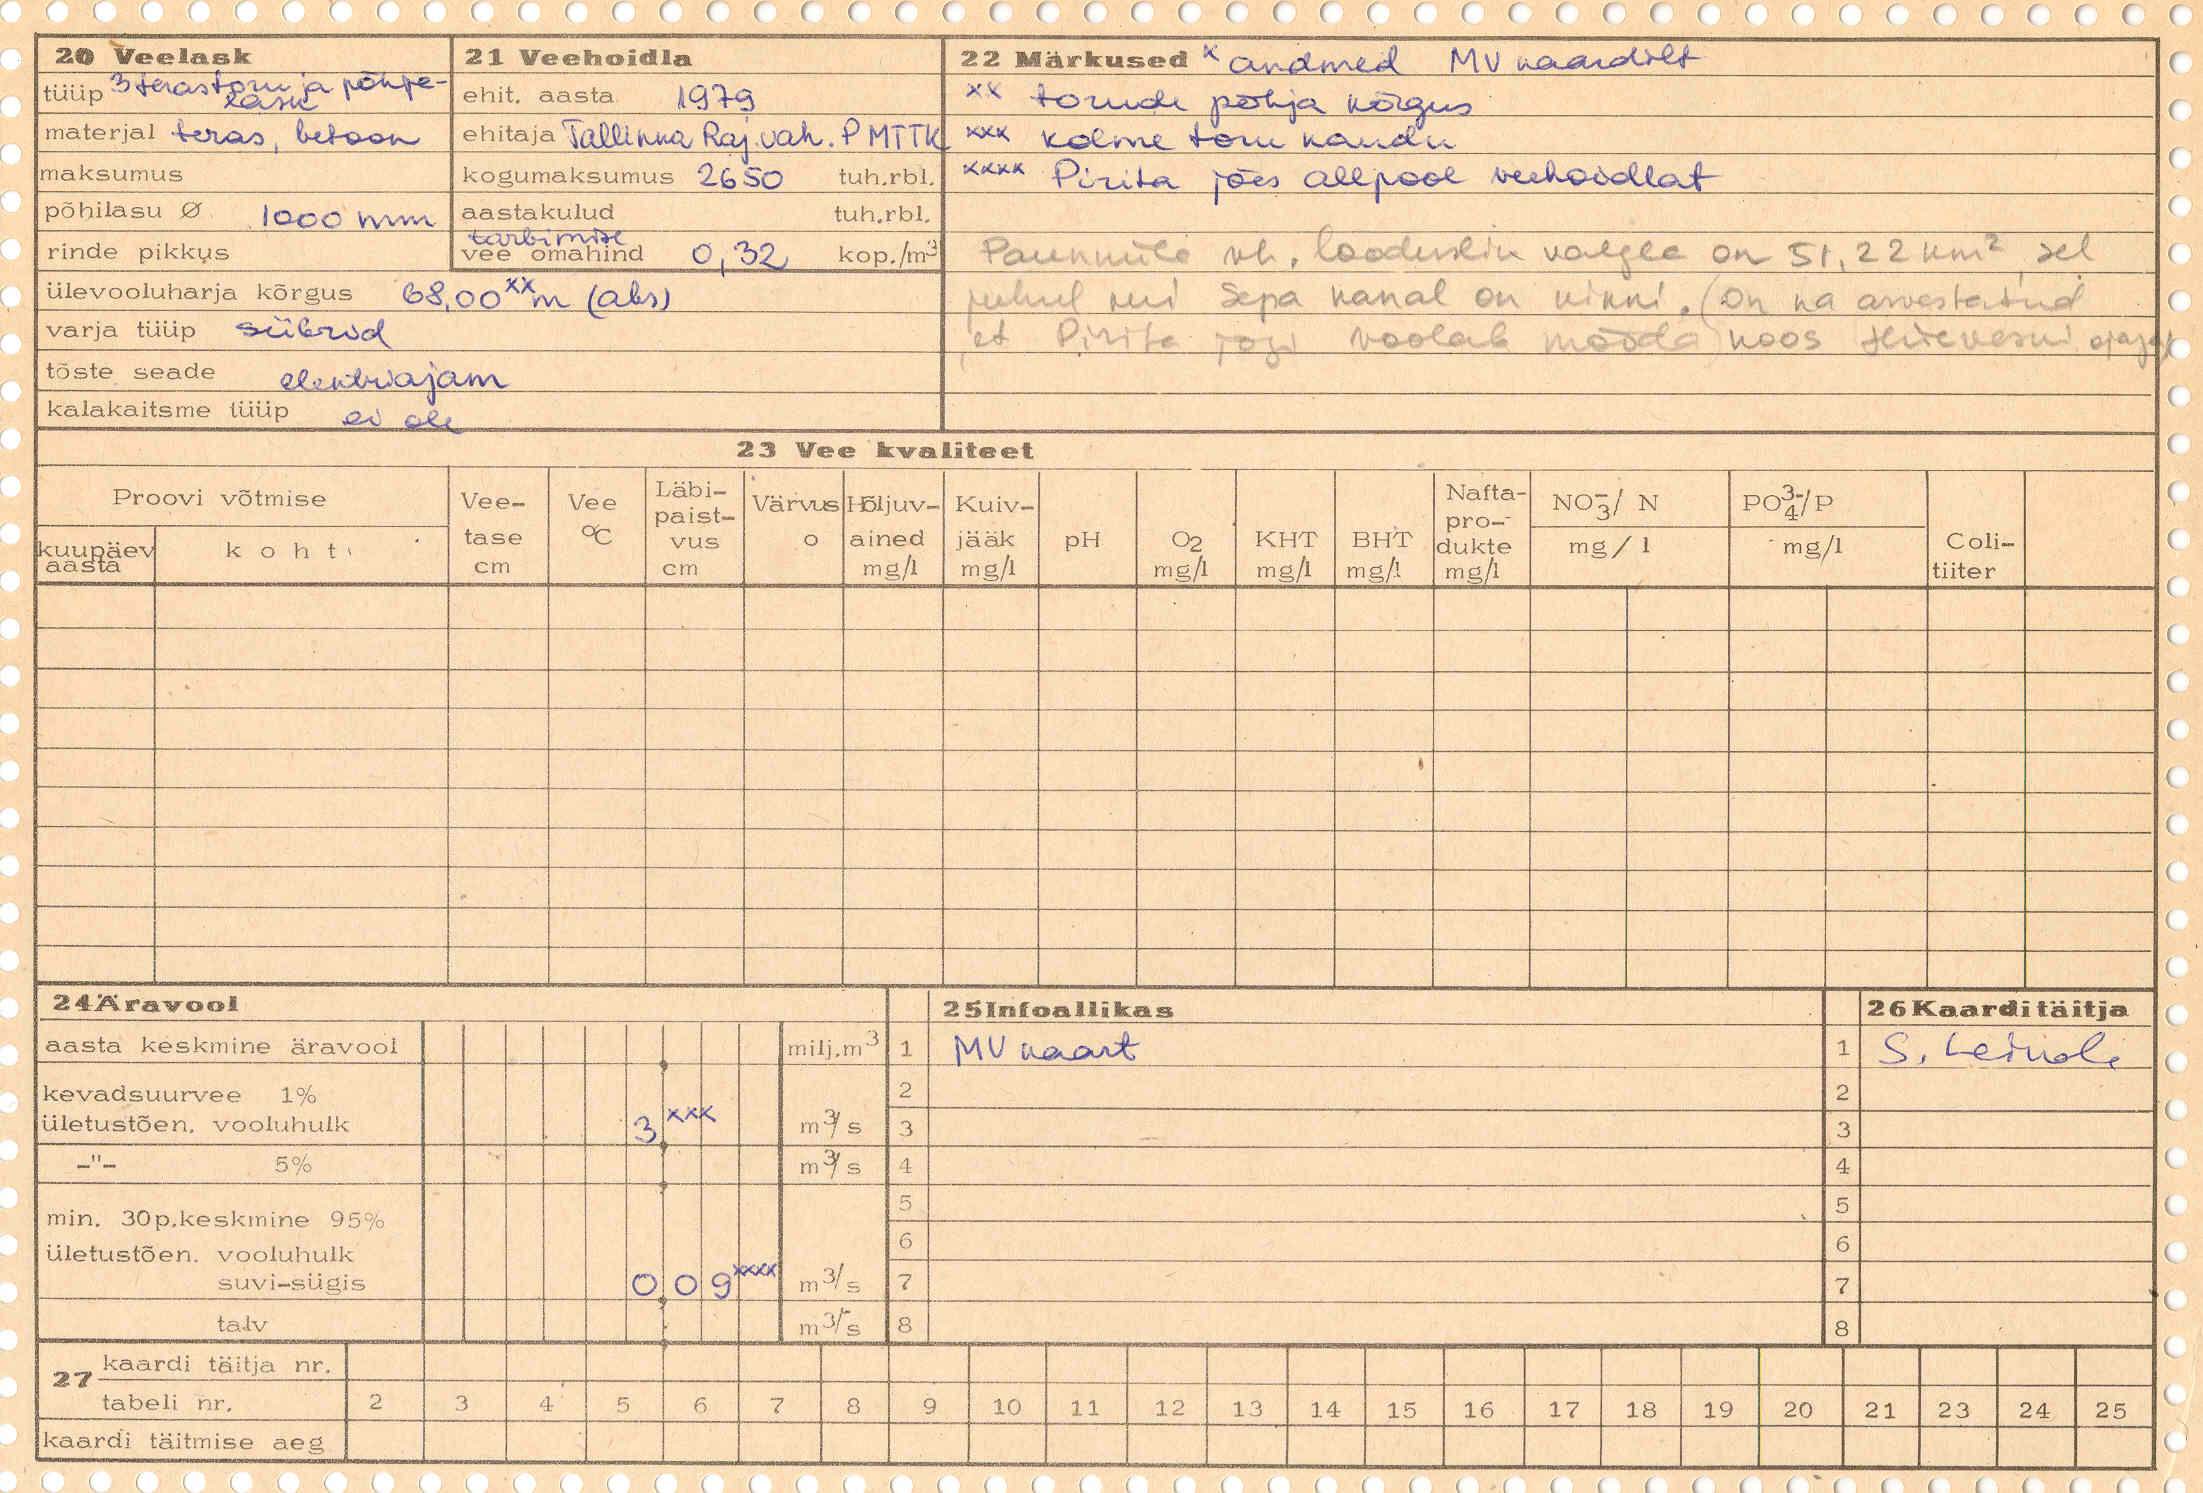 20 Veelask
tüüp 3 terastoru ja põhja-
lask
materjal teras, betoon
maksumus
põhilasu Ø 1000 mm
rinde pikkus
ülevooluharja kõrgus 68,00 xx m (abs)
varja tüüp siibrid
tõste seade elektriajam
kalakaitsme tüüp ei ole
21 Veehoidla
ehit. aasta 1979
ehitaja Tallinna Raj. vah. PMTTK
kogumaksumus 2650 tuh.rbl.
aastakulud tuh.rbl.
tarbimise
vee omahind 0,32 kop./m³
22 Märkused x andmed MV kaardilt
xx torude põhja kõrgus
xxx kolme toru kaudu
xxxx Pirita jões allpool veehoidlat
Paunküla vh. looduslik valgla on 51,22 km², sel
juhul kui Sepa kanal on kinni. (On ka arvestatud
et Pirita jõgi voolab mööda) koos
23 Vee kvaliteet
Proovi võtmise
kuupäev
aasta
koht
Vee-
tase
cm
Vee
°C
Läbi-
paist-
vus
cm
Värvus
o
Hõljuv-
ained
mg/l
Kuiv-
jääk
mg/l
pH
O₂
mg/l
KHT
mg/l
BHT
mg/l
Nafta-
pro-
dukte
mg/l
NO₃⁻/ N
mg/l
PO₄³⁻/P
mg/l
Coli-
tiiter
24 Äravool
aasta keskmine äravool milj.m³
kevadsuurvee 1%
ületustõen. vooluhulk 3 xxx m³/s
-"- 5% m³/s
min. 30p.keskmine 95%
ületustõen. vooluhulk
suvi-sügis 0 0 9 xxxx m³/s
talv m³/s
25 Infoallikas
1 MV kaart
2
3
4
5
6
7
8
26 Kaardi täitja
1 S.
2
3
4
5
6
7
8
27 kaardi täitja nr.
tabeli nr. 2 3 4 5 6 7 8 9 10 11 12 13 14 15 16 17 18 19 20 21 23 24 25
kaardi täitmise aeg